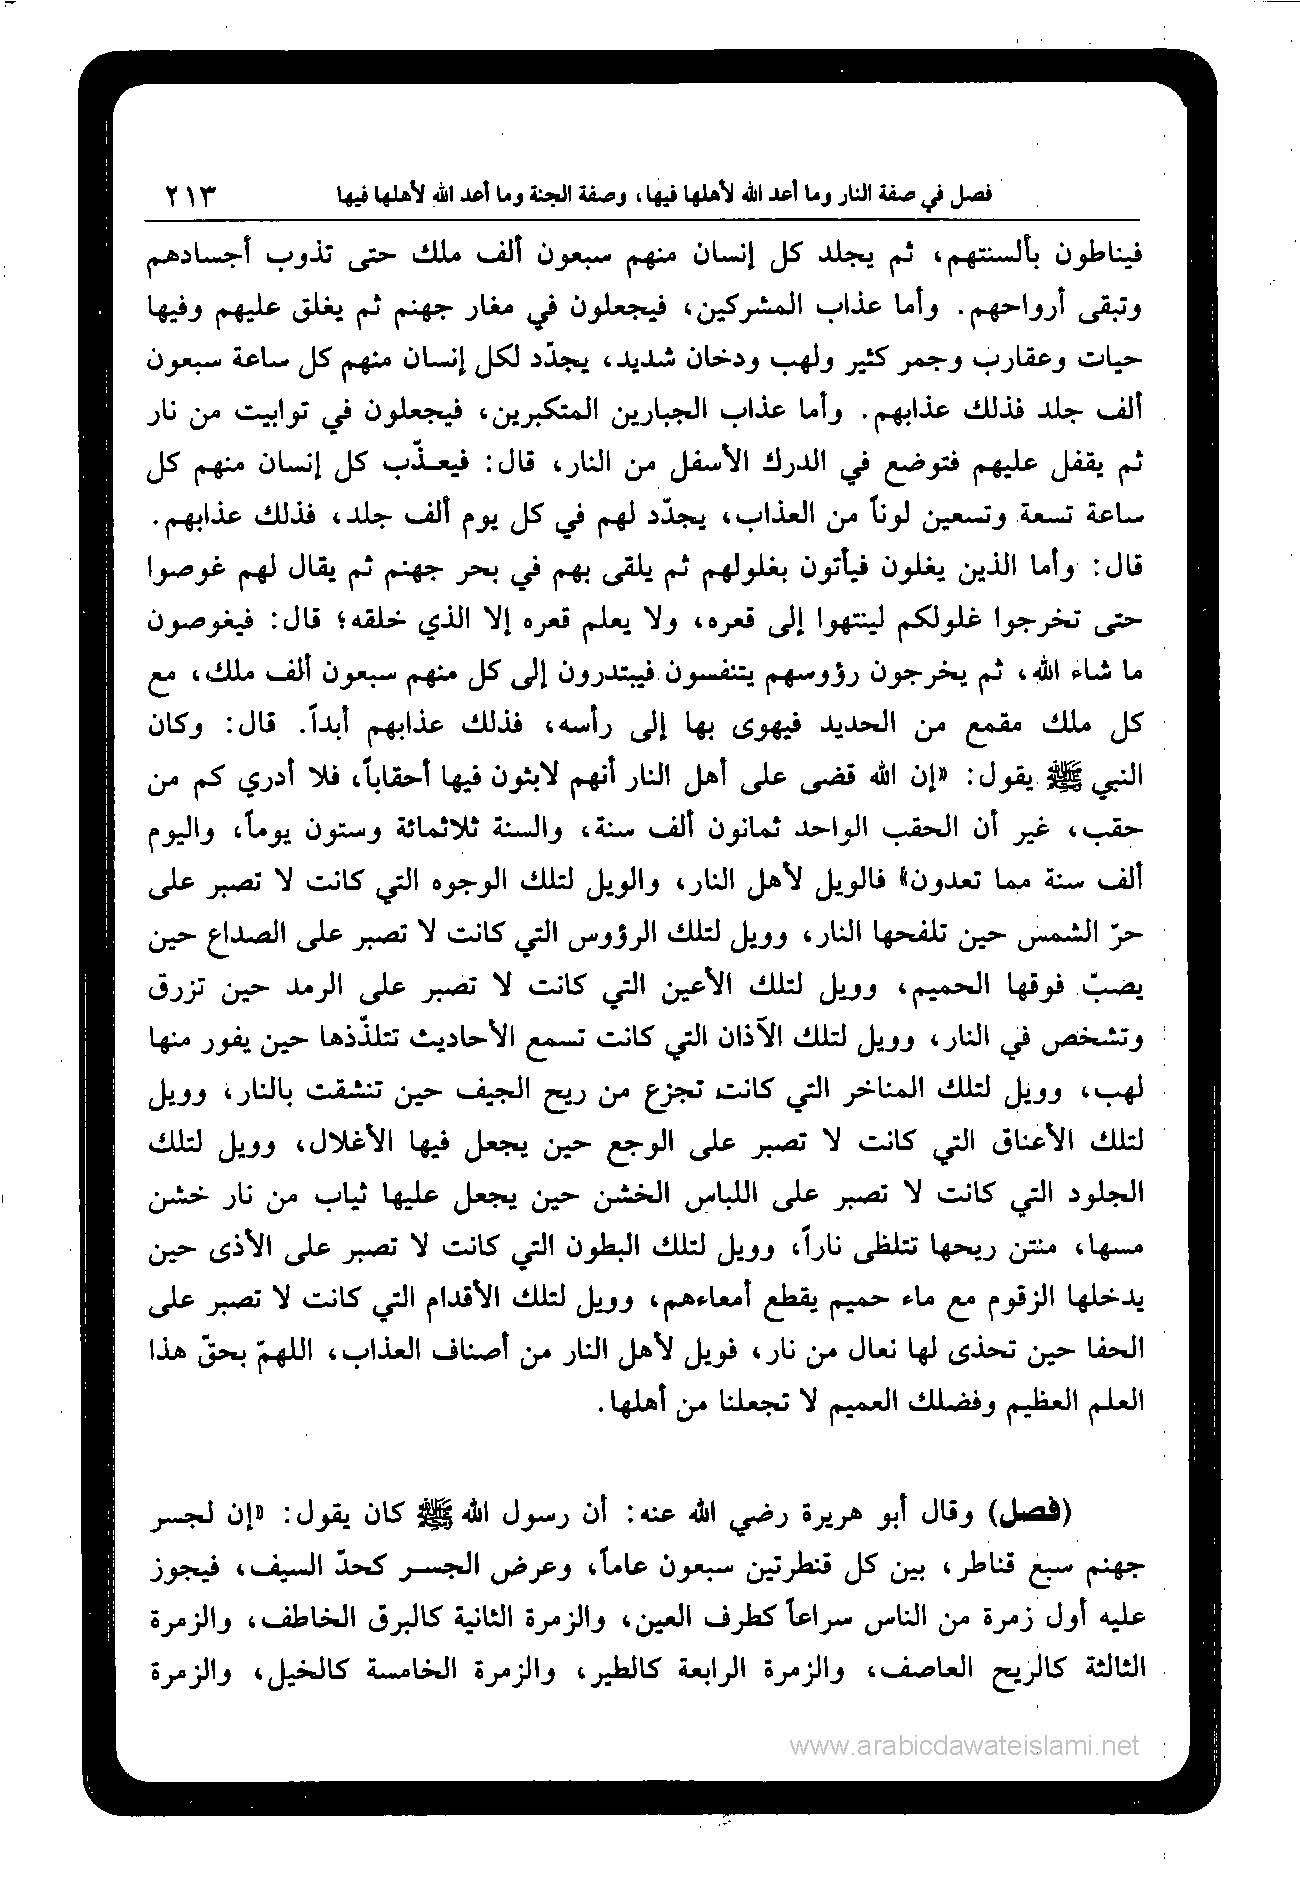 فصل في صفة النار وما أعد الله لأهلها فيها، وصفة الجنة وما أعد الله لأهلها فيها ٢١٣
فيناطون بألسنتهم، ثم يجلد كل إنسان منهم سبعون ألف ملك حتى تذوب أجسادهم
وتبقى أرواحهم. وأما عذاب المشركين، فيجعلون في مغار جهنم ثم يغلق عليهم وفيها
حيات وعقارب وجمر كثير ولهب ودخان شديد، يجدّد لكل إنسان منهم كل ساعة سبعون
ألف جلد فذلك عذابهم. وأما عذاب الجبارين المتكبرين، فيجعلون في توابيت من نار
ثم يقفل عليهم فتوضع في الدرك الأسفل من النار، قال: فيعذّب كل إنسان منهم كل
ساعة تسعة وتسعين لوناً من العذاب، يجدّد لهم في كل يوم ألف جلد، فذلك عذابهم.
قال: وأما الذين يغلون فيأتون بغلولهم ثم يلقى بهم في بحر جهنم ثم يقال لهم غوصوا
حتى تخرجوا غلولكم لينتهوا إلى قعره، ولا يعلم قعره إلا الذي خلقه؛ قال: فيغوصون
ما شاء الله، ثم يخرجون رؤوسهم يتنفسون فيبتدرون إلى كل منهم سبعون ألف ملك، مع
كل ملك مقمع من الحديد فيهوى بها إلى رأسه، فذلك عذابهم أبداً. قال: وكان
النبي ﷺ يقول: «إن الله قضى على أهل النار أنهم لابثون فيها أحقاباً، فلا أدري كم من
حقب، غير أن الحقب الواحد ثمانون ألف سنة، والسنة ثلاثمائة وستون يوماً، واليوم
ألف سنة مما تعدون» فالويل لأهل النار، والويل لتلك الوجوه التي كانت لا تصبر على
حرّ الشمس حين تلفحها النار، وويل لتلك الرؤوس التي كانت لا تصبر على الصداع حين
يصبّ فوقها الحميم، وويل لتلك الأعين التي كانت لا تصبر على الرمد حين تزرق
وتشخص في النار، وويل لتلك الآذان التي كانت تسمع الأحاديث تتلذّذها حين يفور منها
لهب، وويل لتلك المناخر التي كانت تجزع من ريح الجيف حين تنشقت بالنار، وويل
لتلك الأعناق التي كانت لا تصبر على الوجع حين يجعل فيها الأغلال، وويل لتلك
الجلود التي كانت لا تصبر على اللباس الخشن حين يجعل عليها ثياب من نار خشن
مسها، منتن ريحها تتلظى ناراً، وويل لتلك البطون التي كانت لا تصبر على الأذى حين
يدخلها الزقوم مع ماء حميم يقطع أمعاءهم، وويل لتلك الأقدام التي كانت لا تصبر على
الحفا حين تحذى لها نعال من نار، فويل لأهل النار من أصناف العذاب، اللهمّ بحقّ هذا
العلم العظيم وفضلك العميم لا تجعلنا من أهلها.
(فصل) وقال أبو هريرة رضي الله عنه: أن رسول الله ﷺ كان يقول: «إن لجسر
جهنم سبع قناطر، بين كل قنطرتين سبعون عاماً، وعرض الجسر كحدّ السيف، فيجوز
عليه أول زمرة من الناس سراعاً كطرف العين، والزمرة الثانية كالبرق الخاطف، والزمرة
الثالثة كالريح العاصف، والزمرة الرابعة كالطير، والزمرة الخامسة كالخيل، والزمرة
www.arabicdawateislami.net